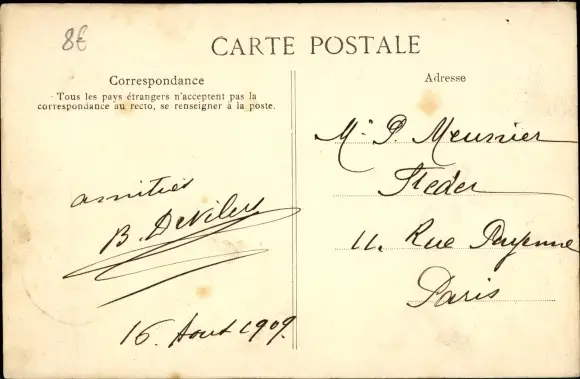 8€
CARTE POSTALE
Correspondance
Tous les pays étrangers n'acceptent pas la
correspondance au recto, se renseigner à la poste.
Adresse
amitiés
B. Devilers
16. Aout 1909.
Mr P. Meunier
11. Rue Payenne
Paris